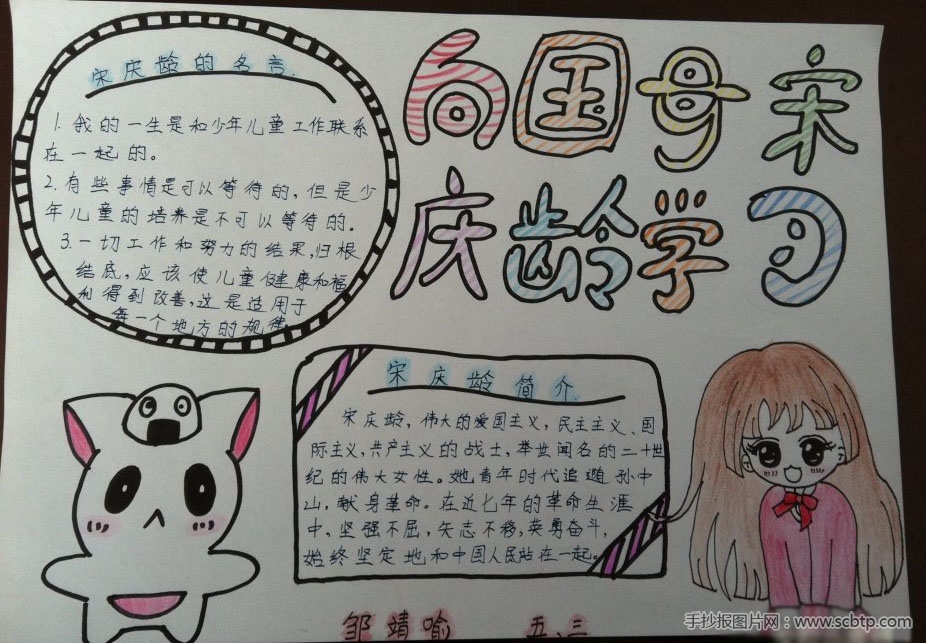 向国母宋
庆龄学习
宋庆龄的名言
1. 我的一生是和少年儿童工作联系
在一起的。
2. 有些事情是可以等待的，但是少
年儿童的培养是不可以等待的。
3. 一切工作和努力的结果，归根
结底，应该使儿童健康和福
利得到改善，这是适用于
每一个地方的规律。
宋庆龄简介
宋庆龄，伟大的爱国主义，民主主义、国
际主义，共产主义的战士，举世闻名的二十世
纪的伟大女性。她青年时代追随孙中
山，献身革命。在近七年的革命生涯
中，坚强不屈，矢志不移，英勇奋斗，
始终坚定地和中国人民站在一起。
邹靖喻 五、三
手抄报图片网：www.scbtp.com